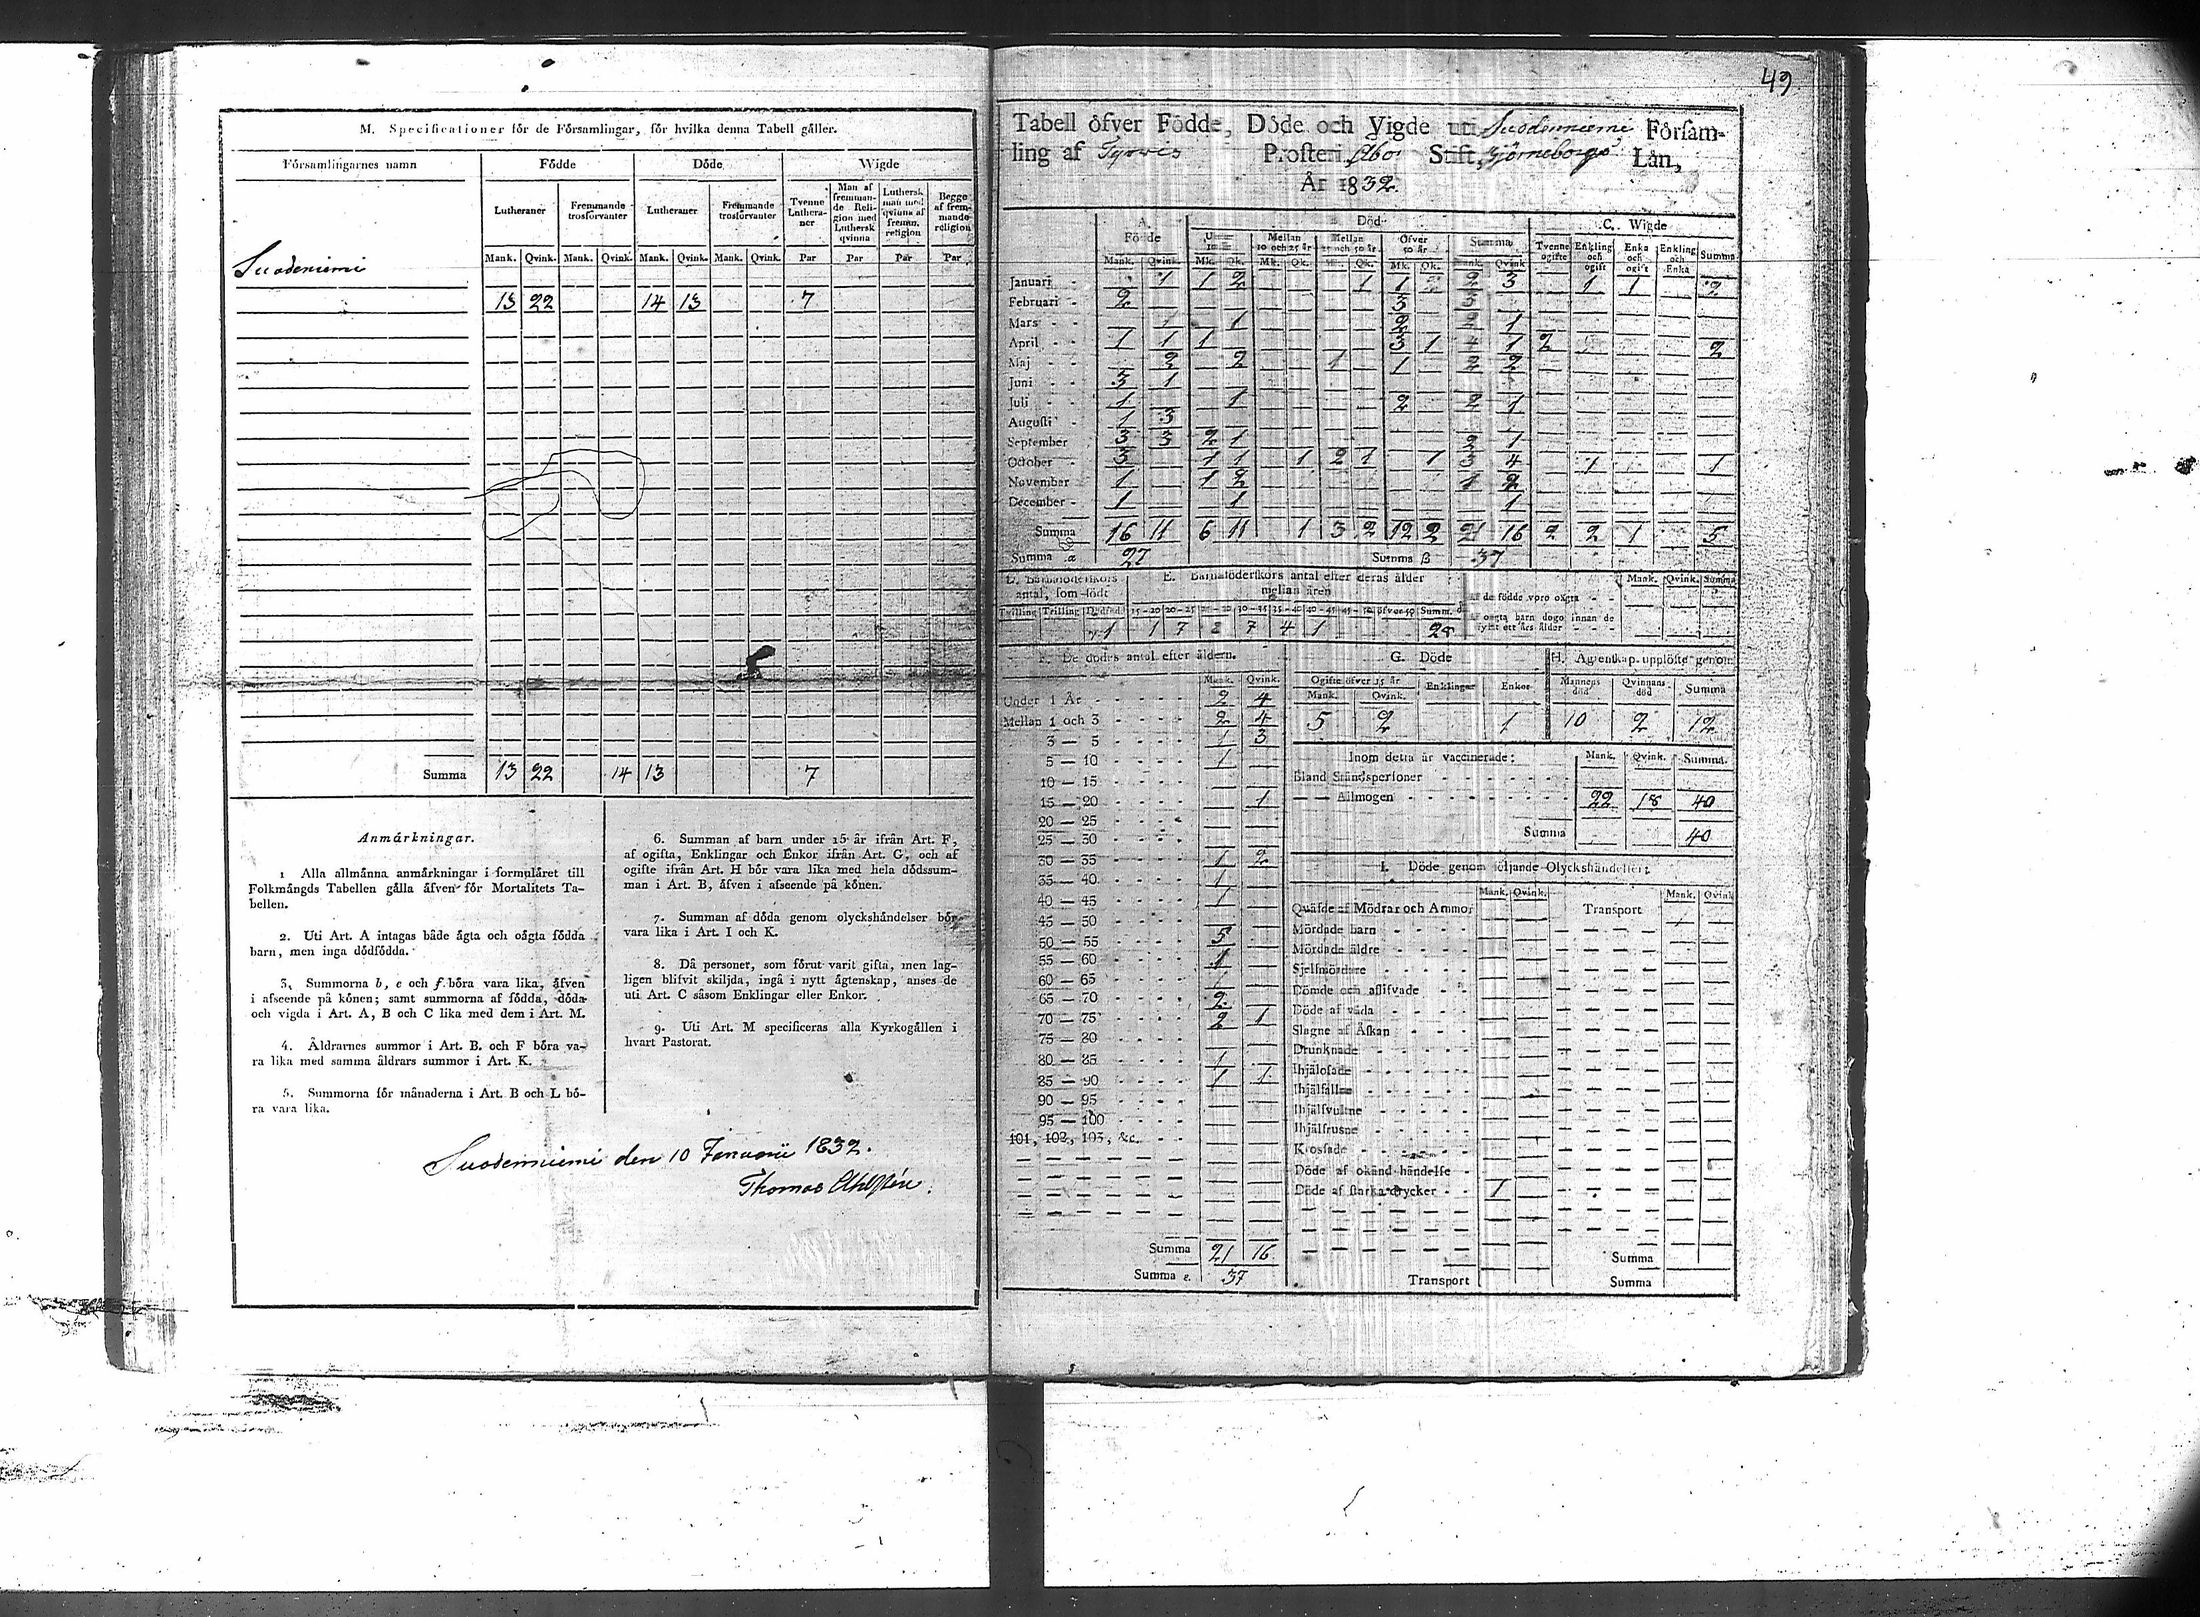 M. Specificationer för de Församlingar, för hvilka denna Tabell gäller.
Församlingarnes namn Födde Döde Wigde
Lutheraner Fremmande trosförvanter Lutheraner Fremmande trosförvanter Tvenne Lutheraner Man af fremmande Religion med Luthersk qvinna Luthersk man med qvinna af fremm. religion Begge af fremmande religion
Mank. Qvink. Mank. Qvink. Mank. Qvink. Mank. Qvink. Par Par Par Par
Suodeniemi
13 22 14 13 7
Summa 13 22 14 13 7
Anmärkningar.
1 Alla allmänna anmärkningar i formuläret till
Folkmängds Tabellen gälla äfven för Mortalitets Ta-
bellen.
2. Uti Art. A intagas både ägta och oägta födda
barn, men inga dödfödda.
3. Summorna b, e och f böra vara lika, äfven
i afseende på könen; samt summorna af födda, döda
och vigda i Art. A, B och C lika med dem i Art. M.
4. Äldrarnes summor i Art. B. och F böra va-
ra lika med samma äldrars summor i Art. K.
5. Summorna för månaderna i Art. B och L bö-
ra vara lika.
6. Summan af barn under 15 år ifrån Art. F,
af ogifta, Enklingar och Enkor ifrån Art. G, och af
ogifte ifrån Art. H bör vara lika med hela dödssum-
man i Art. B, äfven i afseende på könen.
7. Summan af döda genom olyckshändelser bör
vara lika i Art. I och K.
8. Då personer, som förut varit gifta, men lag-
ligen blifvit skiljda, ingå i nytt ägtenskap, anses de
uti Art. C såsom Enklingar eller Enkor.
9. Uti Art. M specificeras alla Kyrkogällen i
hvart Pastorat.
Suodenniemi den 10 Januarii 1832.
Thomas
49
Tabell öfver Födde, Döde och Vigde uti Suodenniemi Försam-
ling af Tyrvis Prosteri Åbo Stift, Björneborgs Län,
År 1832.
A. Födde Död C. Wigde
Mellan 10 och 25 år Mellan 25 och 50 år Öfver 50 år Summa Tvenne ogifte Enkling och ogift Enka och ogift Enkling och Enka Summa
Mank. Qvink. Mk. Qk. Mk. Qk. Mk. Qk. Mk. Qk. Mank. Qvink.
Januari 1 1 2 1 1 2 2 3 1 1 2
Februari 2 3 3
Mars 1 2 2 1
April 1 1 1 3 1 4 1 2 2
Maj 2 2 1 1 2 2
Juni 3 1
Juli 1 1 2 2 1
Augusti 1 3
September 3 3 2 1 2 1
October 3 1 1 1 2 1 1 3 4 1 1
November 1 1 2 1 2
December 1 1 1
Summa 16 11 6 11 1 3 2 12 2 21 16 2 2 1 5
Summa a 27 Summa b 37
D. Barnaföderskors antal, som födt E. Barnaföderskors antal efter deras ålder mellan åren Mank. Qvink. Summa
Tvilling Trilling Dödfödd 15-20 20-25 25-30 30-35 35-40 40-45 45-50 öfver 50 Summ.
Af de födde voro oägta
Af oägta barn dogo innan de fyllt ett års ålder
1 1 7 8 7 4 1 28
F. De dödes antal efter åldern. G. Döde H. Ägtenskap upplöste genom
Mank. Qvink. Ogifte öfver 15 år Enklingar Enkor Mannens död Qvinnans död Summa
Mank. Qvink.
5 2 1 10 2 12
Under 1 År 2 4
Mellan 1 och 3 2 4
3 — 5 1 3
5 — 10 1
10 — 15
15 — 20 1
20 — 25
25 — 30
30 — 35 1 2
35 — 40 1
40 — 45 1
45 — 50
50 — 55 5
55 — 60 1
60 — 65
65 — 70 2
70 — 75 2 1
75 — 80
80 — 85 1
85 — 90 1 1
90 — 95
95 — 100
101, 102, 103, &c.
Summa 21 16
Summa e. 37
Inom detta år vaccinerade: Mank. Qvink. Summa.
Bland Ståndspersoner
— — Allmogen 22 18 40
Summa 40
I. Döde genom följande Olyckshändelser:
Mank. Qvink. Mank. Qvink
Qväfde af Mödrar och Ammor Transport
Mördade barn
Mördade äldre
Sjelfmördare
Dömde och aflifvade
Döde af våda
Slagne af Åskan
Drunknade
Ihjälosade
Ihjälfallne
Ihjälsvultne
Ihjälfrusne
Krossade
Döde af okänd händelse
Döde af starka drycker 1
Summa
Transport Summa